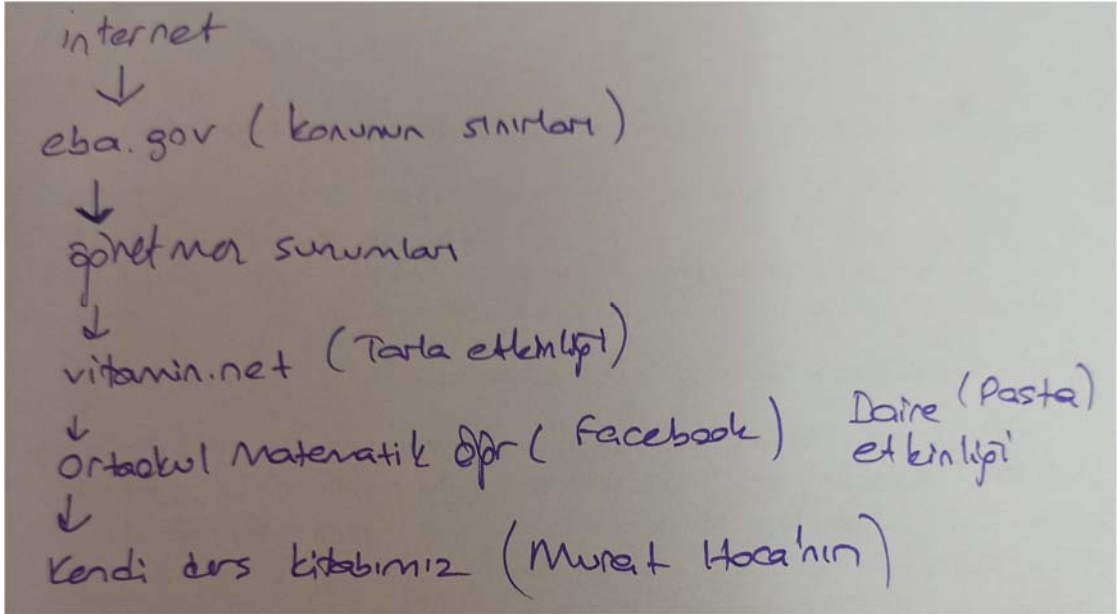 internet
↓
eba.gov (konunun sınırları)
↓
öğretmen sunumları
↓
vitamin.net (Tarla etkinliği)
↓
Ortaokul Matematik Öğr (Facebook) Daire (Pasta) etkinliği
↓
Kendi ders kitabımız (Murat Hoca'nın)